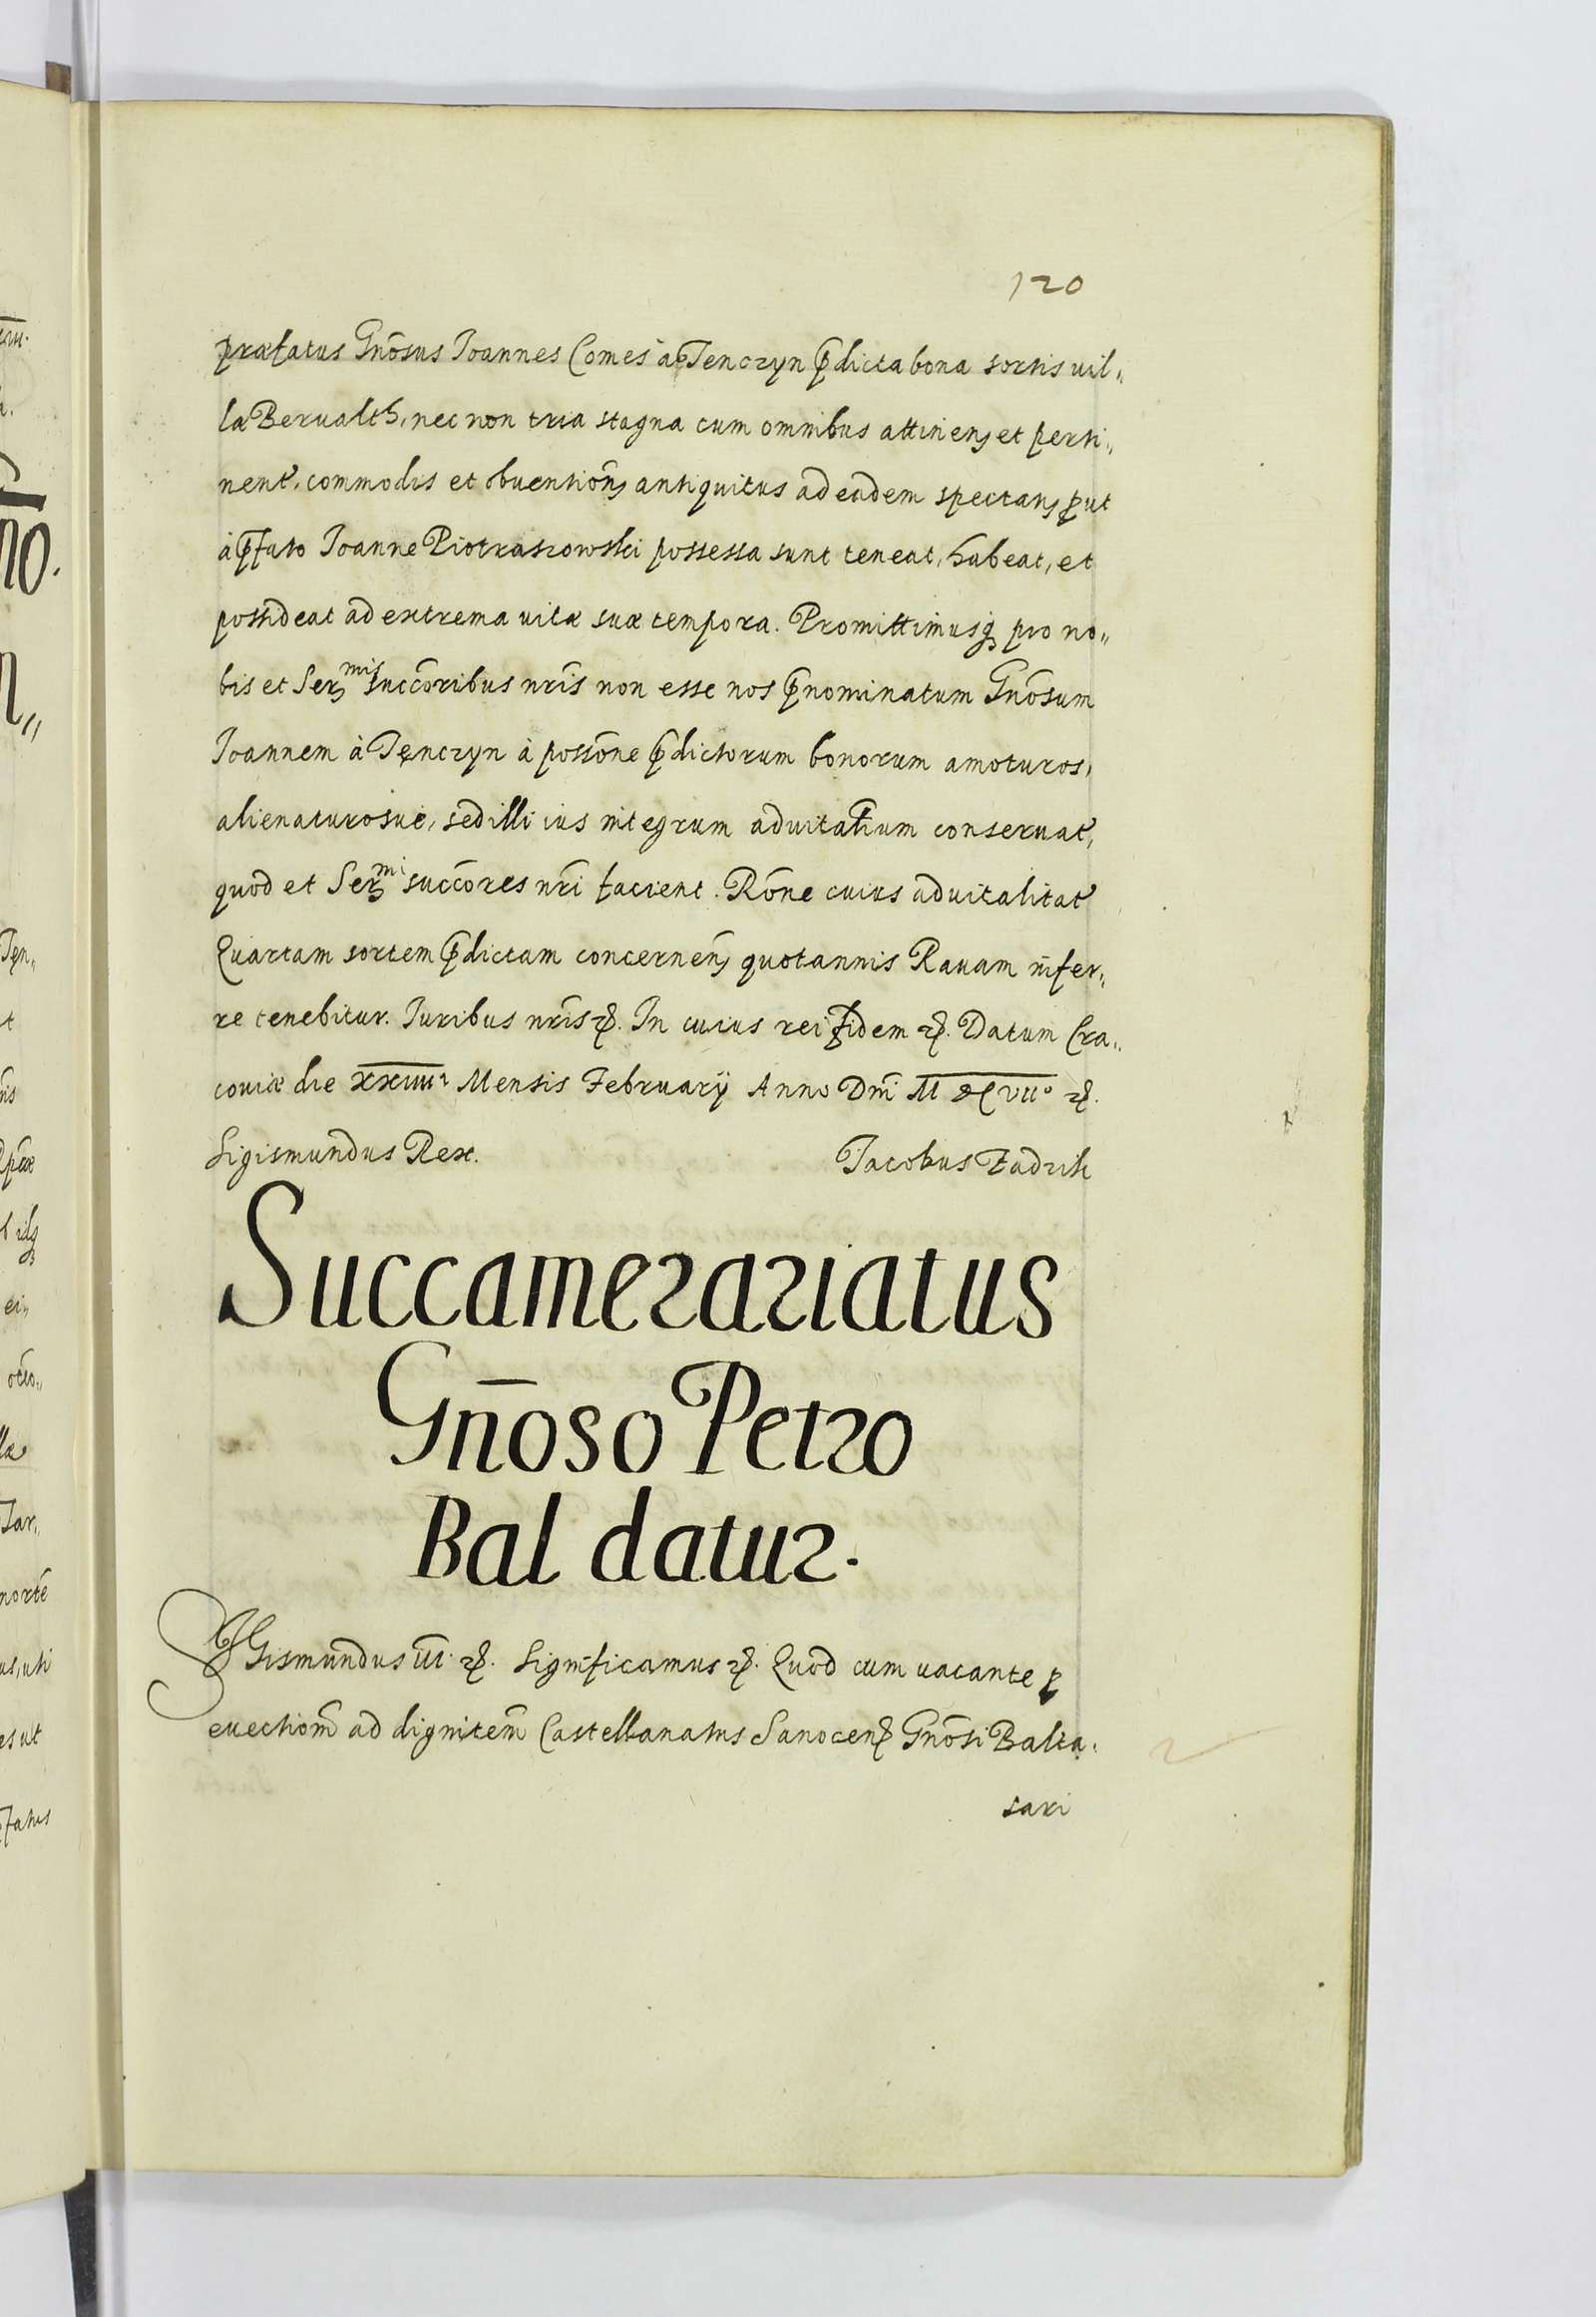 120
præfatus Gnōsus Joannes Comes à Tenczyn p̄dicta bona sortis uil„
læ Berualth, nec non tria stagna cum omnibus attinenꝫ et perti„
nent. commodis et obuentiōnꝫ antiquitus ad eadem spectanꝫ ꝓut
à p̄fato Joanne Piotraszowski possessa sunt teneat, habeat, et
possideat ad extrema uitæ suæ tempora. Promittimusqꝫ pro no„
bis et Serꝫmis succōribus nr̄is non esse nos p̄nominatum Gnōsum
Joannem à Tęnczyn à possōne p̄dictorum bonorum amoturos,
alienaturosue, sed illi ius integrum aduitalium conseruat,
quod et Serꝫmi succōres nr̄i facient. Rōne cuius aduitalitat
Quartam sortem p̄dictam concernēnꝫ quotannis Rauam infer„
re tenebitur. Juribus nr̄is ꝛꝭ. In cuius rei fidem ꝛꝭ. Datum Cra„
couiæ die xxiiii Mensis Februarÿ Anno Dnī M DC VIIo ꝛꝭ.
Sigismundus Rex. Jacobus Zadzik
Succamerariatus
Gn̄oso Petro
Bal datur.
SIGismundus III. ꝛꝭ. Significamus ꝛꝭ. Quod cum uacante ꝑ
euectiom̄ ad dignitem̄ Castellanatus Sanocenꝭ Gnōsi Balta„
sari